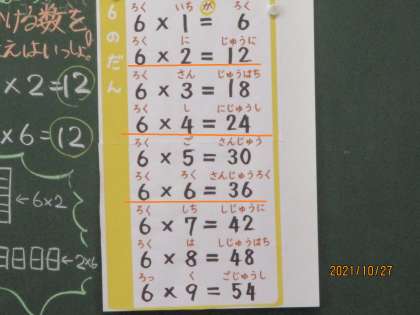 かける数を
えはいっしょ。
× 2 = 12
× 6 = 12
←6×2
←2×6
6のだん
ろく いち が ろく
6 × 1 = 6
ろく に じゅうに
6 × 2 = 12
ろく さん じゅうはち
6 × 3 = 18
ろく し にじゅうし
6 × 4 = 24
ろく ご さんじゅう
6 × 5 = 30
ろく ろく さんじゅうろく
6 × 6 = 36
ろく しち しじゅうに
6 × 7 = 42
ろく は しじゅうはち
6 × 8 = 48
ろっ く ごじゅうし
6 × 9 = 54
2021/10/27